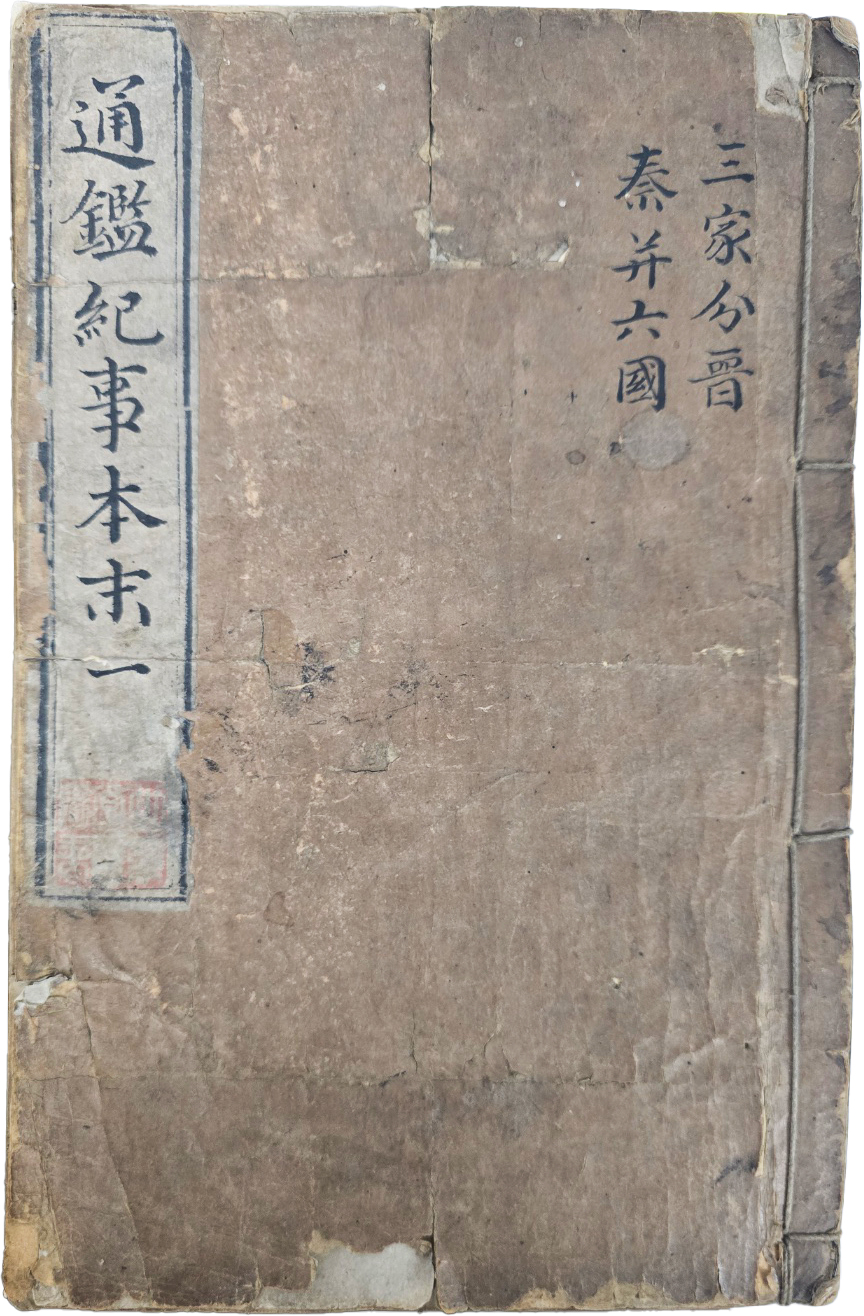 三家分晉
秦并六國
通鑑紀事本末一